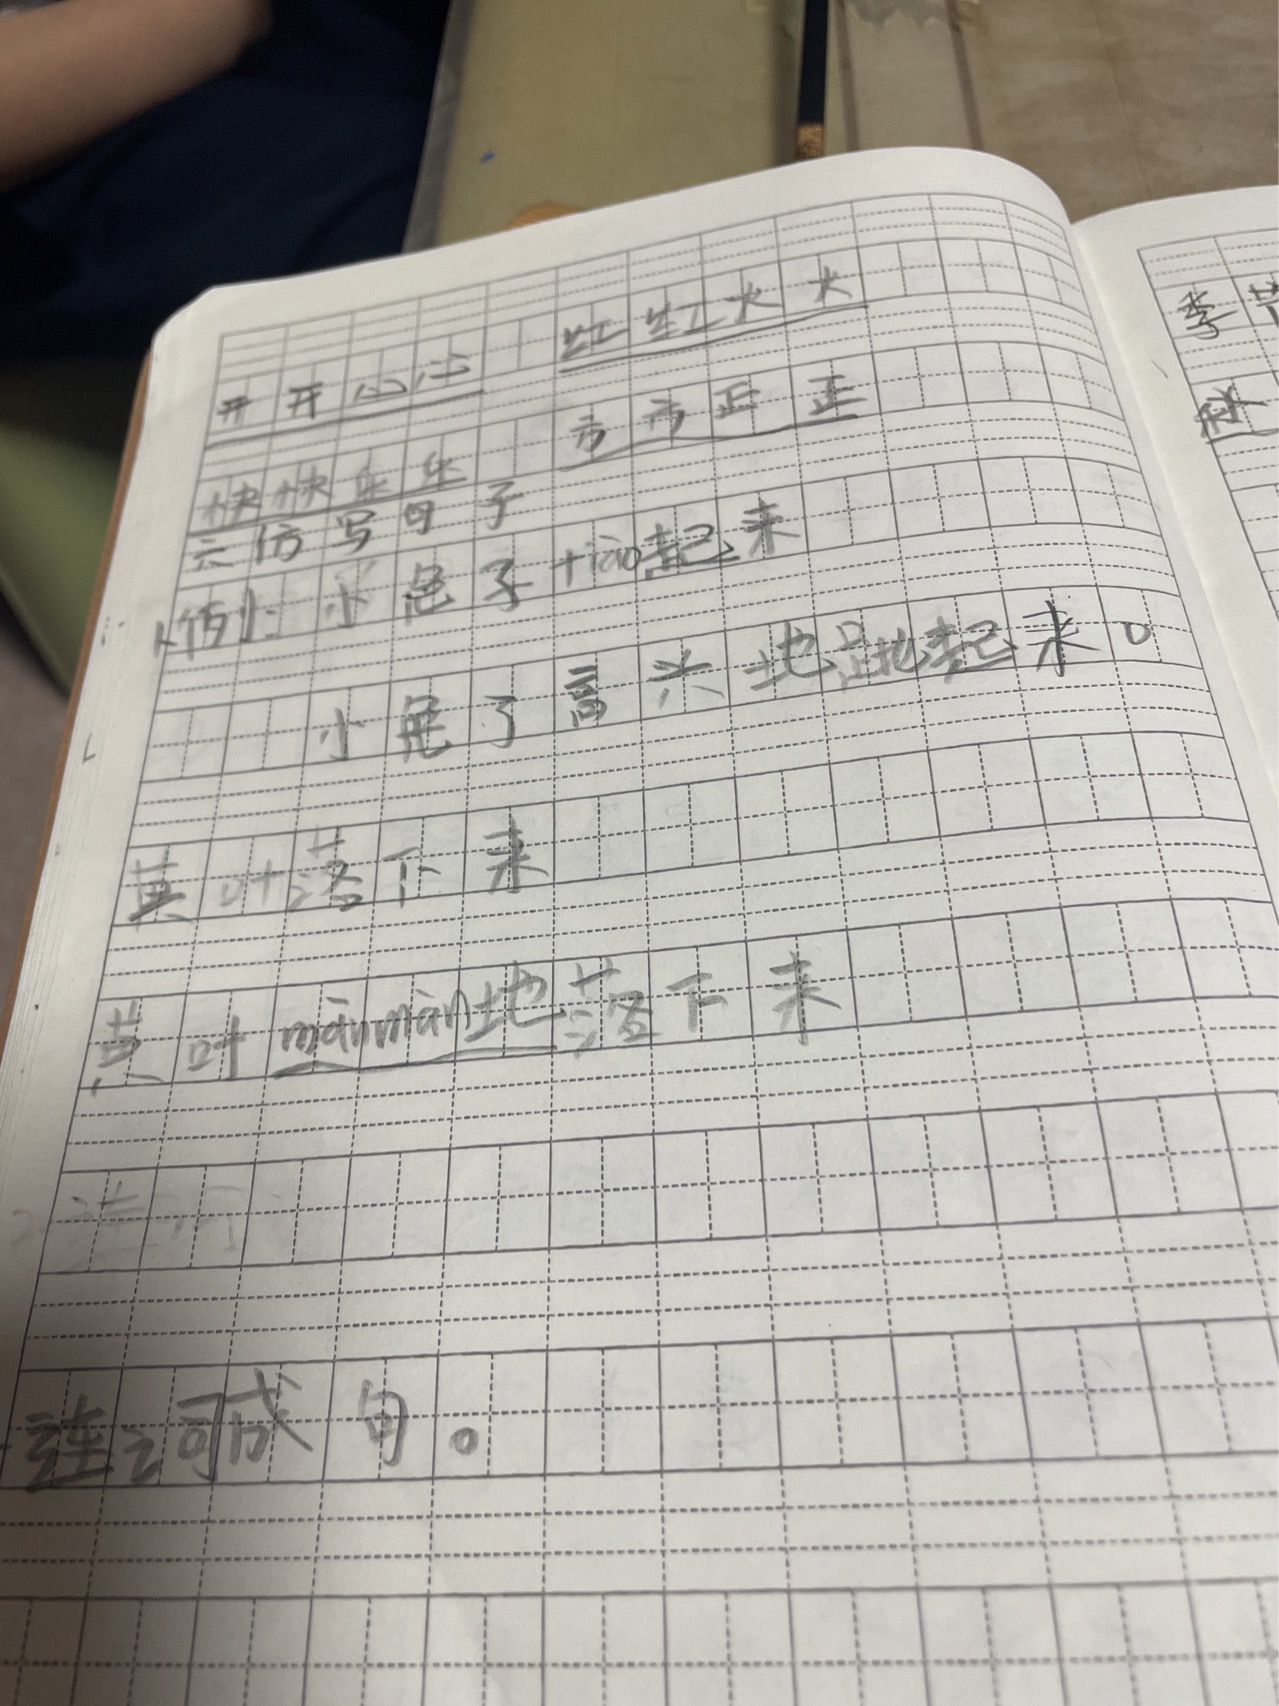 开开心心 红红火火
快快乐乐 方方正正
三仿写句子
例小 小兔子tiào起来
小兔子高兴地跳起来。
黄叶落下来
黄叶mànmàn地落下来
连词成句。
李
秋